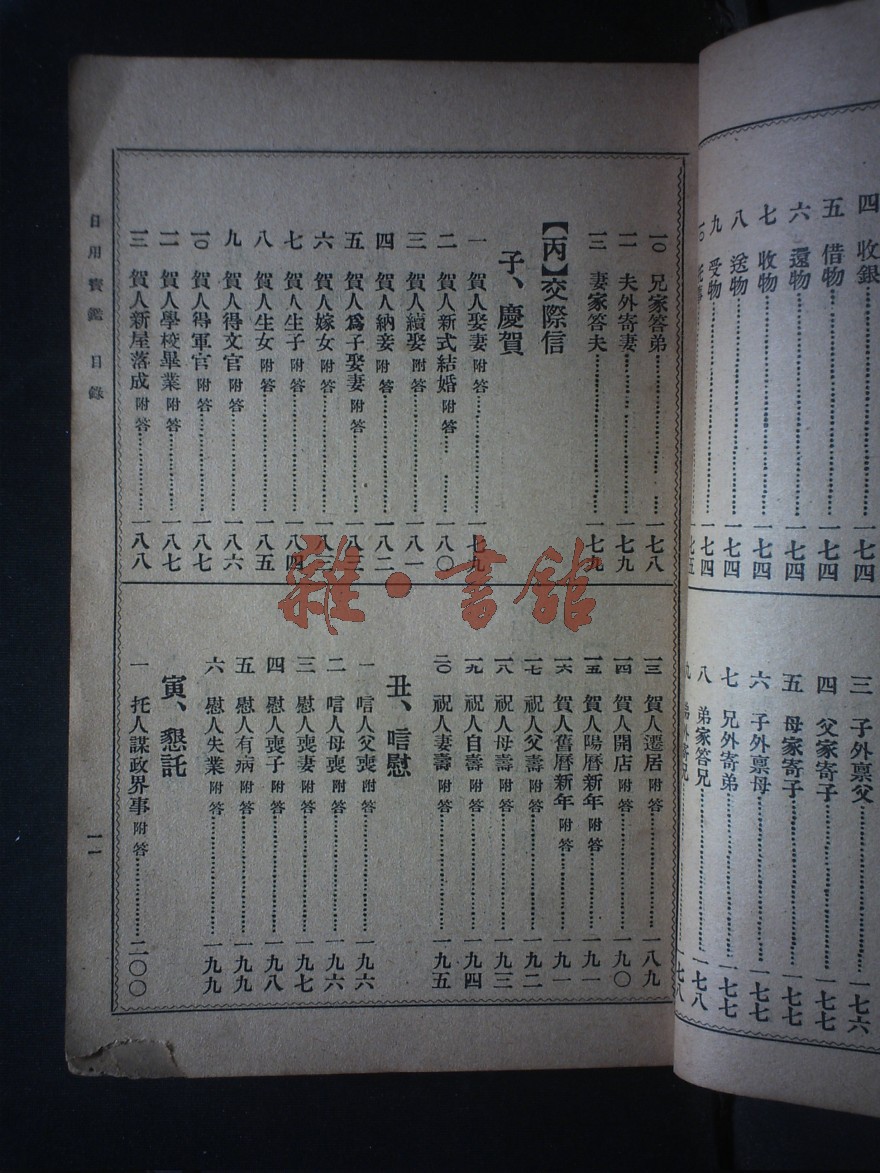 四 收銀 一七四
五 借物 一七四
六 還物 一七四
七 收物 一七四
八 送物 一七四
九 受物 一七四
一〇
三 子外稟父 一七六
四 父家寄子 一七七
五 母家寄子 一七七
六 子外稟母 一七七
七 兄外寄弟 一七七
八 弟家答兄 一七八
九 弟外寄兄 一七八
一〇 兄家答弟 一七八
一一 夫外寄妻 一七九
一二 妻家答夫 一七九
【丙】交際信
子、慶賀
一 賀人娶妻 附答 一七九
二 賀人新式結婚 附答 一八〇
三 賀人續娶 附答 一八一
四 賀人納妾 附答 一八二
五 賀人爲子娶妻 附答 一八三
六 賀人嫁女 附答 一八三
七 賀人生子 附答 一八四
八 賀人生女 附答 一八五
九 賀人得文官 附答 一八六
一〇 賀人得軍官 附答 一八七
一一 賀人學校畢業 附答 一八七
一二 賀人新屋落成 附答 一八八
一三 賀人遷居 附答 一八九
一四 賀人開店 附答 一九〇
一五 賀人陽曆新年 附答 一九一
一六 賀人舊曆新年 附答 一九一
一七 祝人父壽 附答 一九二
一八 祝人母壽 附答 一九三
一九 祝人自壽 附答 一九四
二〇 祝人妻壽 附答 一九五
丑、唁慰
一 唁人父喪 附答 一九六
二 唁人母喪 附答 一九六
三 慰人喪妻 附答 一九七
四 慰人喪子 附答 一九八
五 慰人有病 附答 一九九
六 慰人失業 附答 一九九
寅、懇託
一 托人謀政界事 附答 二〇〇
日用寶鑑 目錄
一一
雜·書館